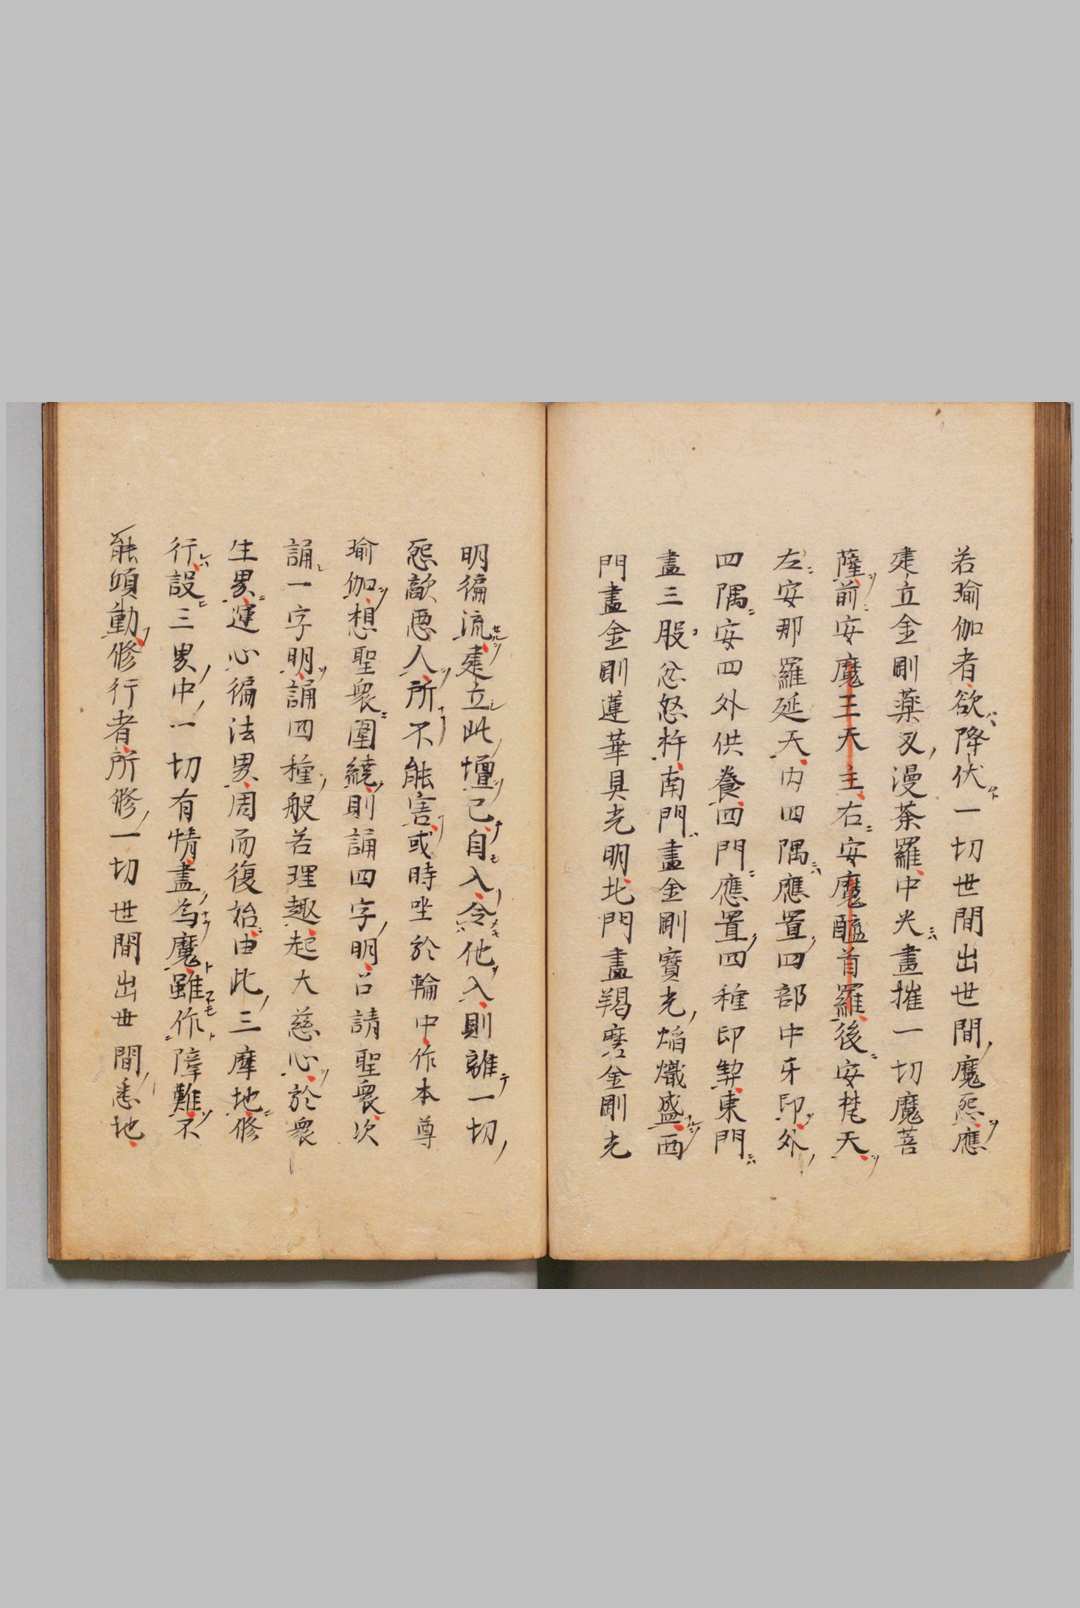 若瑜伽者欲降伏一切世間出世間魔怨應
建立金剛藥叉漫荼羅中央畫摧一切魔菩
薩前安魔三天主右安魔醯首羅後安梵天
左安那羅延天内四隅應置四部中牙印外
四隅安四外供養四門應置四種印契東門
畫三股忿怒杵南門畫金剛寶光焰熾盛西
門畫金剛蓮華具光明北門畫羯磨金剛光
明徧流建立此壇已自入令他入則離一切
怨敵惡人所不能害或時坐於輪中作本尊
瑜伽想聖衆圍繞則誦四字明召請聖衆次
誦一字明誦四種般若理趣起大慈心於衆
生界運心徧法界周而復始由此三摩地修
行設三界中一切有情盡為魔雖作障難不
能傾動修行者所修一切世間出世間悉地